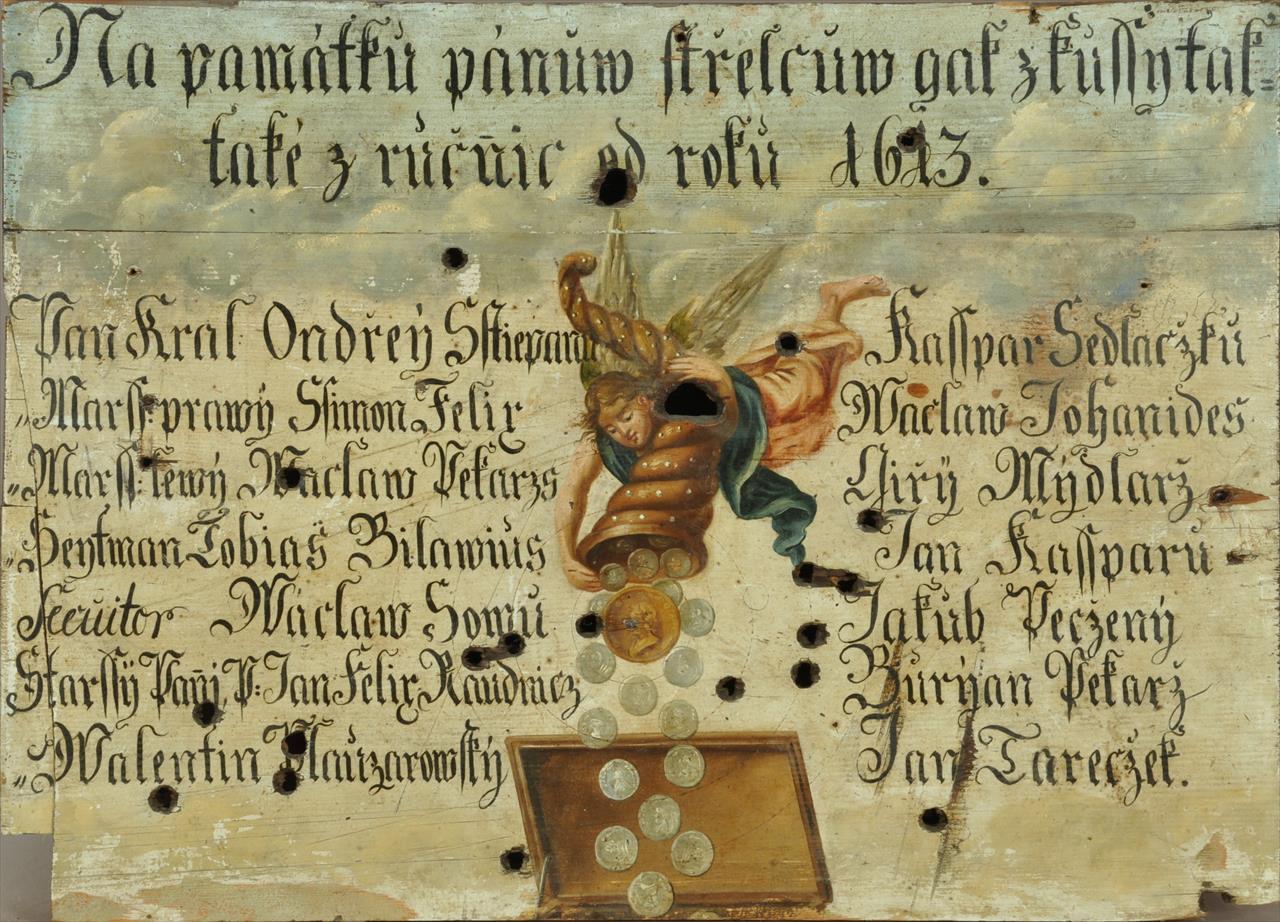 Na památků pánůw střelcůw gak z kůssÿ tak=
také z růčňic od roků 1613.
Pan Kral Ondřeÿ Sstiepanů
„Marss: prawÿ Ssimon Felix
„Marss: lewÿ Waclaw Pekařzs
„Heytman Tobiaš Bilawiůs
Secůitor Wáclaw Somů
Starssÿ Pañi, P: Jan Felix Raudnicz
„Walentin Naůzarowskÿ
Kasspar Sedlaczků
Waclaw Johanides
Giřÿ Mÿdlarž
Jan Kassparů
Jakůb Peczenÿ
Bůrÿan Pekarž
Jan Tareczek.